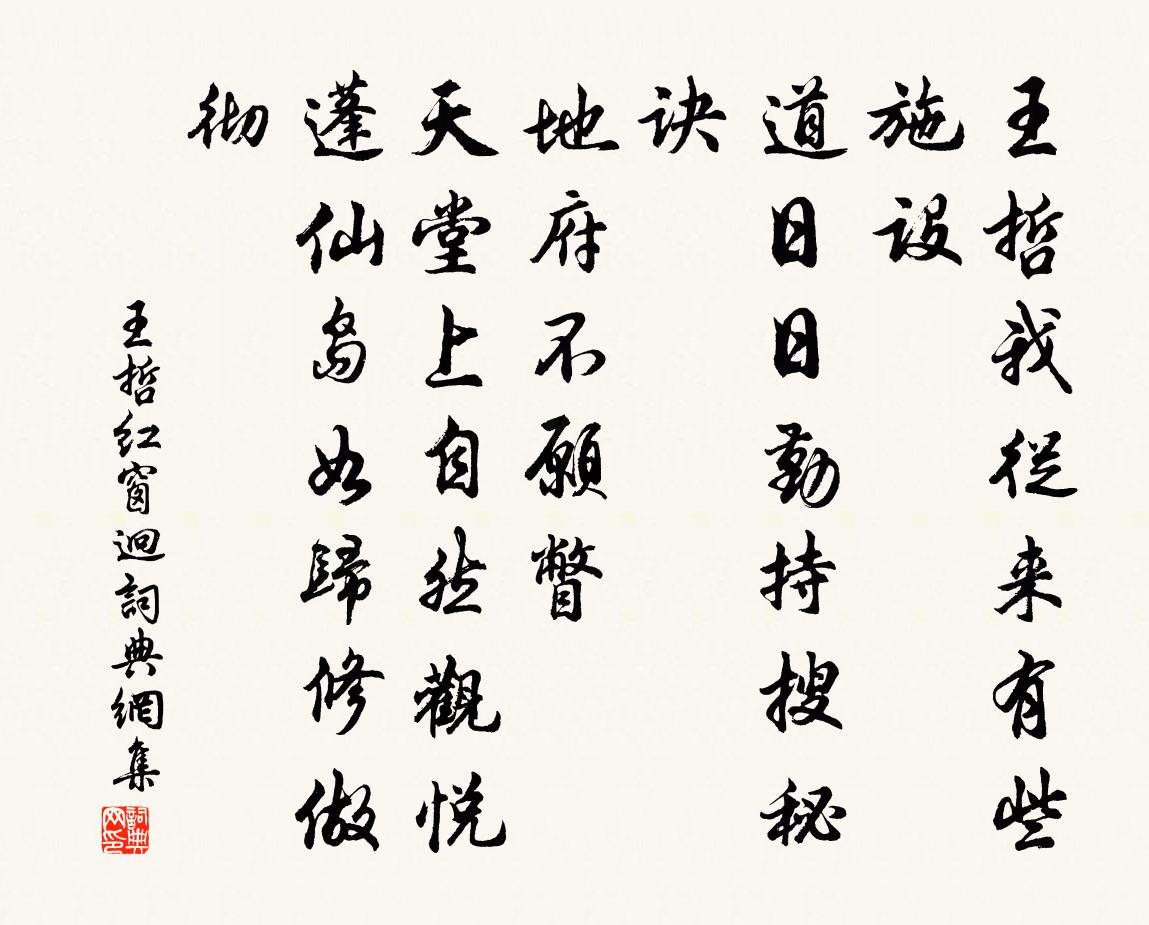 王哲我從来有些
施設
道日日勤持搜秘
訣
地府不願瞥
天堂上自然觀悦
蓬仙島如歸修做
彻
王哲紅窗迥詞典網集
詞典
网印